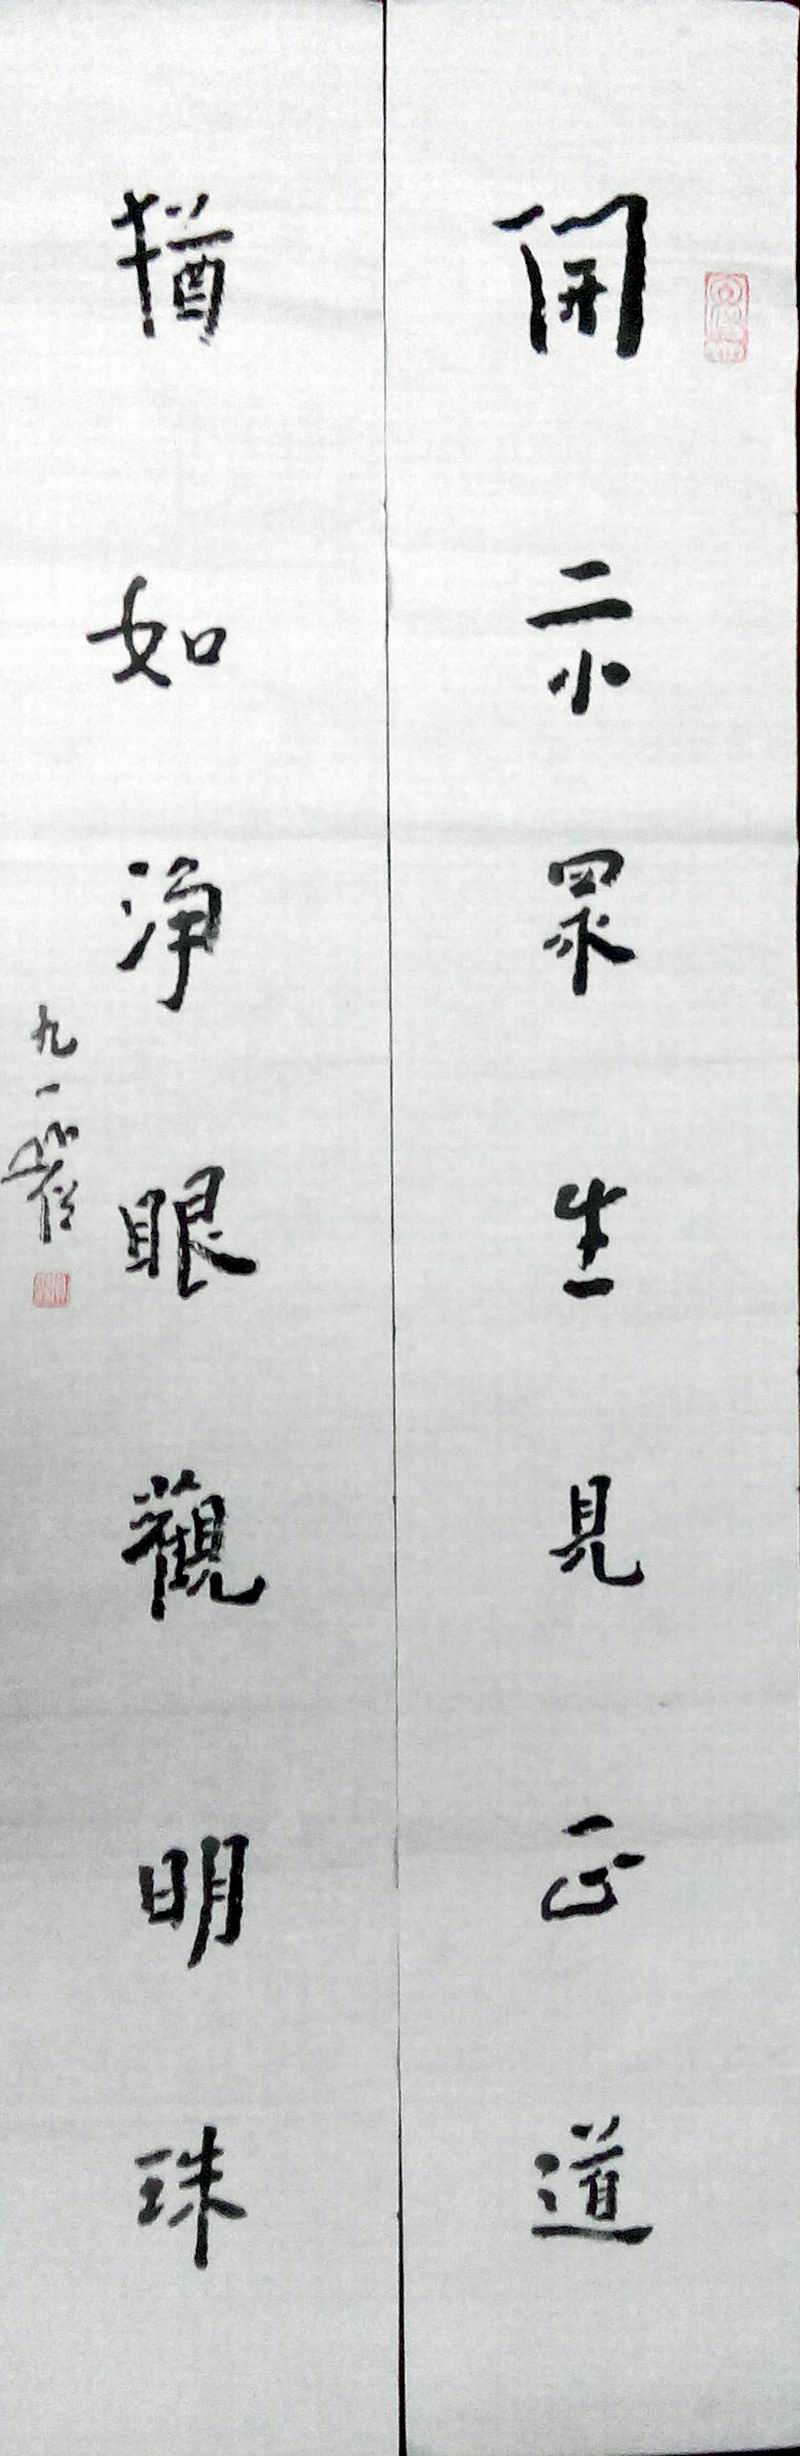 開示眾生見正道
猶如淨眼觀明珠
九一